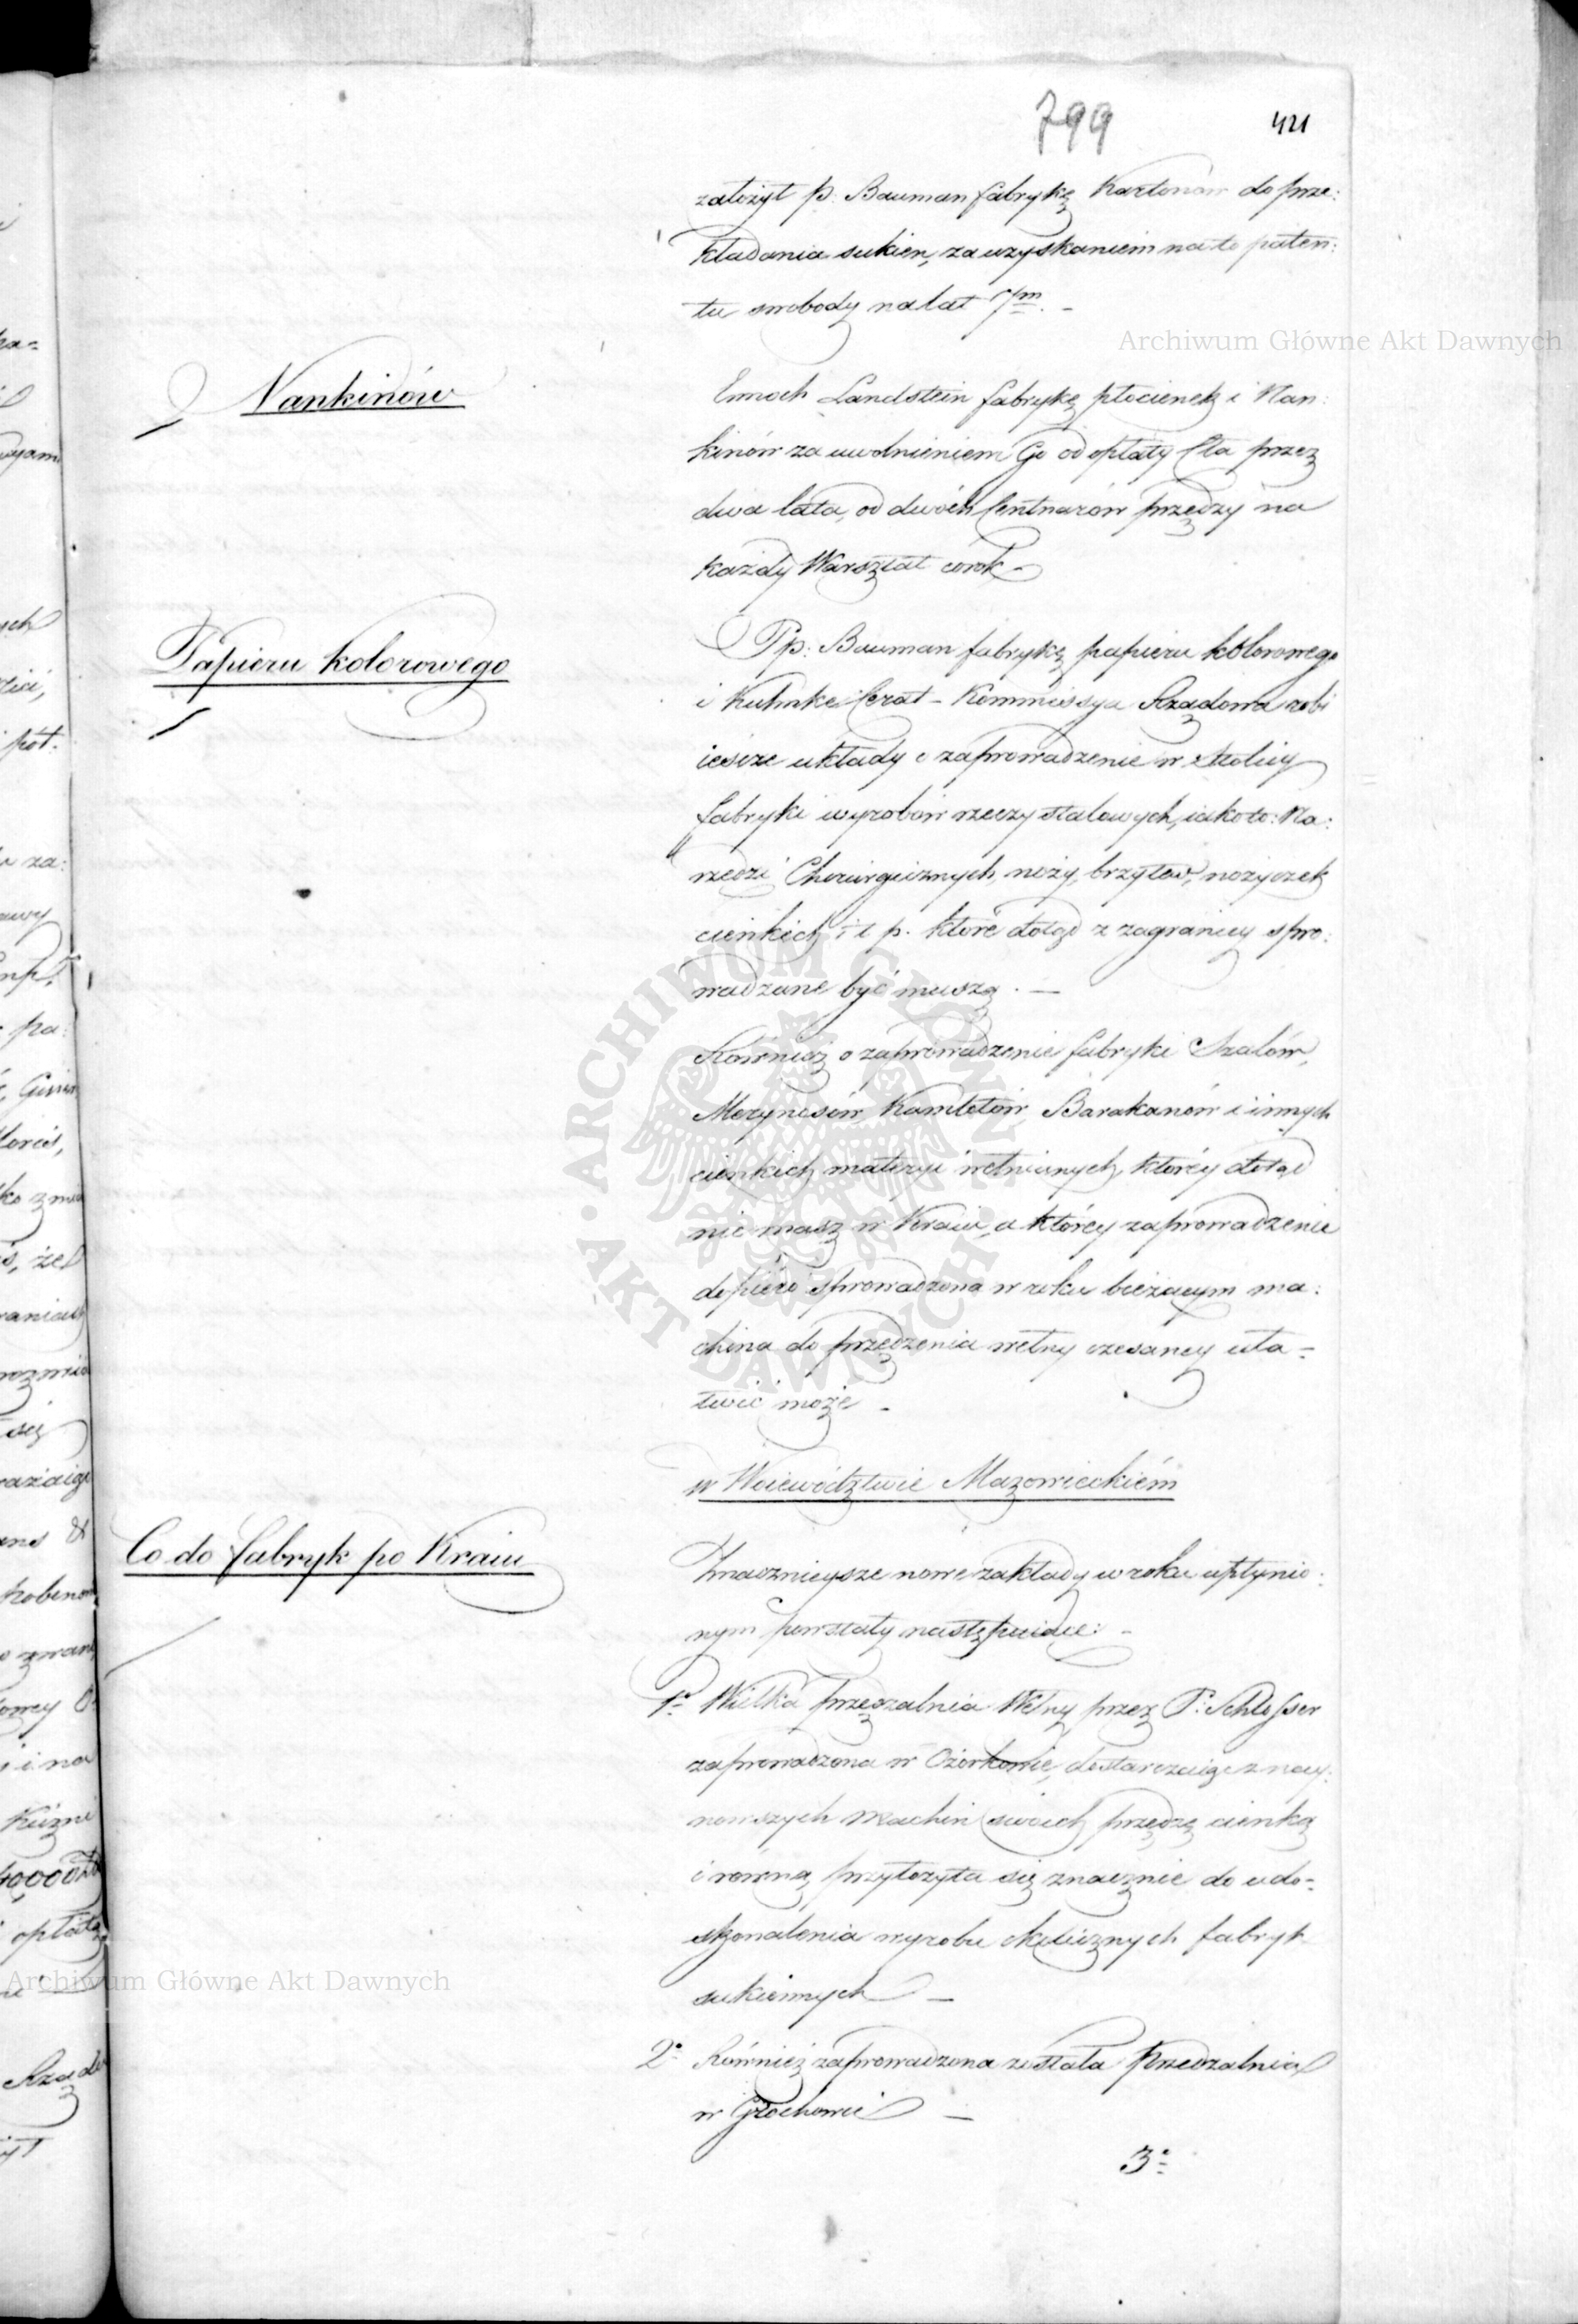 799
421
założył p: Bauman fabrykę Kartonów do prze:
kładania sukien, za uzyskaniem na to paten:
tu swobody na lat 7m. -
Archiwum Główne Akt Dawnych
Nankinów
Ennoch Landstein fabrykę płocienek i Nan:
kinów za uwolnieniem Go od opłaty Cła przez
dwa lata, od dwóch Centnarów przędzy na
każdy Warsztat corok -
Papieru kolorowego
Pp: Bauman fabrykę papieru kolorowego
i Kuhnke Cerat - Kommissya Rządowa robi
ieszcze układy o zaprowadzenie w Stolicy
fabryki wyrobów rzeczy stalowych, iako to: Na:
rzędzi Chirurgicznych, noży, brzytew, nożyczek
cienkich i t p. które dotąd z zagranicy spro:
wadzane być muszą. —
Również o zaprowadzenie fabryki Szalów,
Merynosów, Kamlotów, Barakanów i innych
cienkich materyi wełnianych, któréy dotąd
nie masz w Kraiu, a któréy zaprowadzenie
dopiéro sprowadzona w roku bieżącym ma:
china do przędzenia wełny czesanéy uła=
twić może -
ARCHIWUM GŁÓWNE AKT DAWNYCH
w Woiewództwie Mazowieckiém
Co do fabryk po Kraiu
Znacznieysze nowe zakłady w roku upłynio:
nym powstały następuiące: -
1o Wielka przędzalnia Wełny przez P: Schlosser
zaprowadzona w Ozorkowie, dostarczaiąc z nay:
nowszych Machin swoich przędzę cienką
i równą, przyłożyła się znacznie do udo=
skonalenia wyrobu okolicznych fabryk
sukiennych —
Archiwum Główne Akt Dawnych
2o Również zaprowadzona została Przędzalnia
w Grochowie —
3o